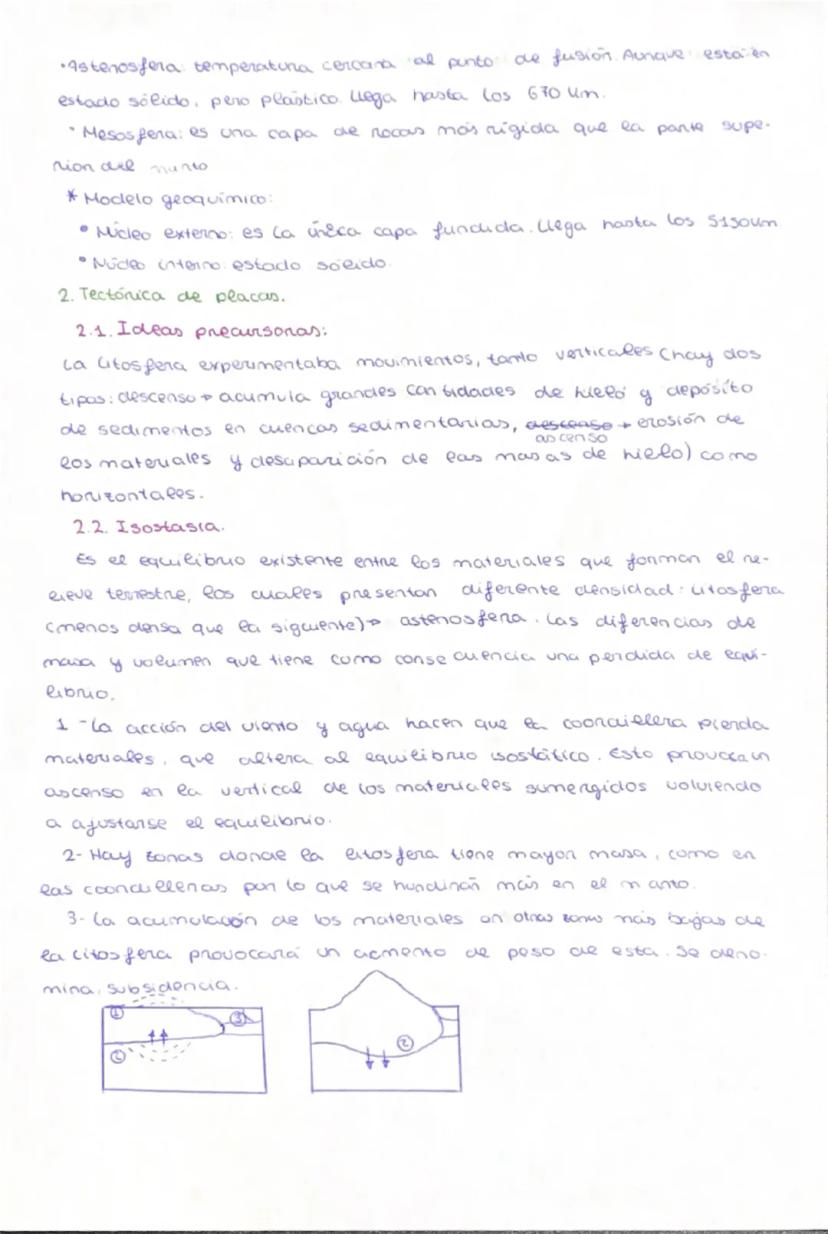 ·Astenosfera: temperatura cercana al punto de fusión. Aunque está en
estado sólido, pero plástico. Llega hasta los 670 Km.
· Mesosfera: es una capa de rocas más rígida que la parte supe-
rior del manto
* Modelo geoquímico:
• Núcleo externo: es la única capa fundida. Llega hasta los 5150Km
• Núcleo interno: estado sólido.
2. Tectónica de placas.
2.1. Ideas precursoras:
La litosfera experimentaba movimientos, tanto verticales (hay dos
tipos: descenso → acumula grandes cantidades de hielo y depósito
de sedimentos en cuencas sedimentarias, descenso → erosión de
ascenso
los materiales y desaparición de las masas de hielo) como
horizontales.
2.2. Isostasia.
Es el equilibrio existente entre los materiales que forman el re-
lieve terrestre, los cuales presentan diferente densidad: litosfera
(menos densa que la siguiente) → astenosfera. Las diferencias de
masa y volumen que tiene como consecuencia una perdida de equi-
librio.
1 - La acción del viento y agua hacen que la coordillera pierda
materiales, que altera al equilibrio isostático. Esto provoca un
ascenso en la vertical de los materiales sumergidos volviendo
a ajustarse el equilibrio.
2- Hay zonas donde la litosfera tiene mayor masa, como en
las coordilleras por lo que se hundirán más en el manto.
3- La acumulación de los materiales en otras zonas más bajas de
la litosfera provocará un aumento de peso de esta. Se deno-
mina, subsidencia.
① ③
②
②